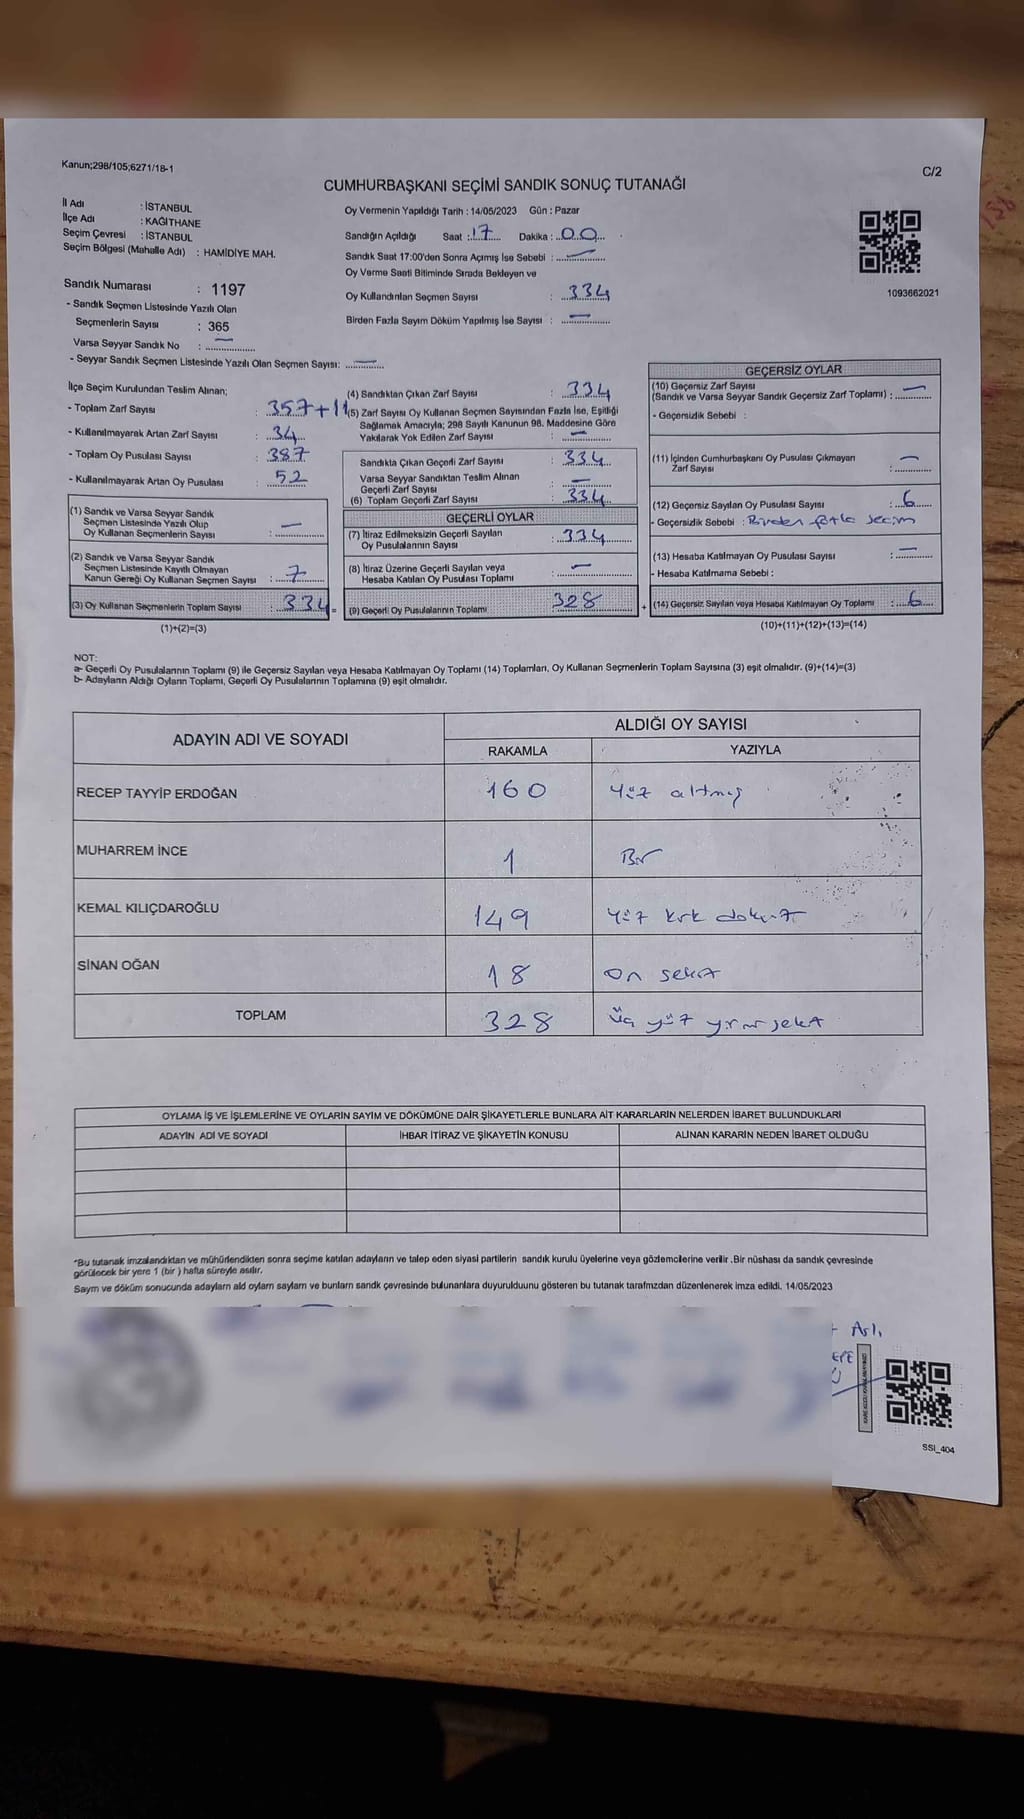 Kanun;298/105;6271/18-1
C/2
CUMHURBAŞKANI SEÇİMİ SANDIK SONUÇ TUTANAĞI
İl Adı : İSTANBUL
İlçe Adı : KAĞITHANE
Seçim Çevresi : İSTANBUL
Seçim Bölgesi (Mahalle Adı) : HAMİDİYE MAH.
Sandık Numarası : 1197
- Sandık Seçmen Listesinde Yazılı Olan
Seçmenlerin Sayısı : 365
Varsa Seyyar Sandık No : —
- Seyyar Sandık Seçmen Listesinde Yazılı Olan Seçmen Sayısı: —
Oy Vermenin Yapıldığı Tarih : 14/05/2023 Gün : Pazar
Sandığın Açıldığı Saat : 17 Dakika : 00
Sandık Saat 17:00'den Sonra Açımış İse Sebebi : —
Oy Verme Saati Bitiminde Sırada Bekleyen ve
Oy Kullandırılan Seçmen Sayısı : 334
Birden Fazla Sayım Döküm Yapılmış İse Sayısı : —
1093662021
İlçe Seçim Kurulundan Teslim Alınan;
- Toplam Zarf Sayısı : 357+11
- Kullanılmayarak Artan Zarf Sayısı : 34
- Toplam Oy Pusulası Sayısı : 387
- Kullanılmayarak Artan Oy Pusulası : 52
(1) Sandık ve Varsa Seyyar Sandık
Seçmen Listesinde Yazılı Olup
Oy Kullanan Seçmenlerin Sayısı : —
(2) Sandık ve Varsa Seyyar Sandık
Seçmen Listesinde Kayıtlı Olmayan
Kanun Gereği Oy Kullanan Seçmen Sayısı : 7
(3) Oy Kullanan Seçmenlerin Toplam Sayısı : 334 =
(1)+(2)=(3)
(4) Sandıktan Çıkan Zarf Sayısı : 334
(5) Zarf Sayısı Oy Kullanan Seçmen Sayısından Fazla İse, Eşitliği
Sağlamak Amacıyla; 298 Sayılı Kanunun 98. Maddesine Göre
Yakılarak Yok Edilen Zarf Sayısı : —
Sandıkta Çıkan Geçerli Zarf Sayısı : 334
Varsa Seyyar Sandıktan Teslim Alınan
Geçerli Zarf Sayısı : —
(6) Toplam Geçerli Zarf Sayısı : 334
GEÇERLİ OYLAR
(7) İtiraz Edilmeksizin Geçerli Sayılan
Oy Pusulalarının Sayısı : 334
(8) İtiraz Üzerine Geçerli Sayılan veya
Hesaba Katılan Oy Pusulası Toplamı : —
(9) Geçerli Oy Pusulalarının Toplamı 328 +
GEÇERSİZ OYLAR
(10) Geçersiz Zarf Sayısı
(Sandık ve Varsa Seyyar Sandık Geçersiz Zarf Toplamı) : —
- Geçersizlik Sebebi :
(11) İçinden Cumhurbaşkanı Oy Pusulası Çıkmayan
Zarf Sayısı : —
(12) Geçersiz Sayılan Oy Pusulası Sayısı : 6
- Geçersizlik Sebebi : Birden fazla seçim
(13) Hesaba Katılmayan Oy Pusulası Sayısı : —
- Hesaba Katılmama Sebebi :
(14) Geçersiz Sayılan veya Hesaba Katılmayan Oy Toplamı : 6
(10)+(11)+(12)+(13)=(14)
NOT:
a- Geçerli Oy Pusulalarının Toplamı (9) ile Geçersiz Sayılan veya Hesaba Katılmayan Oy Toplamı (14) Toplamları, Oy Kullanan Seçmenlerin Toplam Sayısına (3) eşit olmalıdır. (9)+(14)=(3)
b- Adayların Aldığı Oyların Toplamı, Geçerli Oy Pusulalarının Toplamına (9) eşit olmalıdır.
ADAYIN ADI VE SOYADI
ALDIĞI OY SAYISI
RAKAMLA YAZIYLA
RECEP TAYYİP ERDOĞAN 160 yüz altmış
MUHARREM İNCE 1 Bir
KEMAL KILIÇDAROĞLU 149 yüz kırk dokuz
SİNAN OĞAN 18 on sekiz
TOPLAM 328 üç yüz yirmi sekiz
OYLAMA İŞ VE İŞLEMLERİNE VE OYLARIN SAYIM VE DÖKÜMÜNE DAİR ŞİKAYETLERLE BUNLARA AİT KARARLARIN NELERDEN İBARET BULUNDUKLARI
ADAYIN ADI VE SOYADI İHBAR İTİRAZ VE ŞİKAYETİN KONUSU ALINAN KARARIN NEDEN İBARET OLDUĞU
*Bu tutanak imzalandıktan ve mühürlendikten sonra seçime katılan adayların ve talep eden siyasi partilerin sandık kurulu üyelerine veya gözlemcilerine verilir .Bir nüshası da sandık çevresinde
görülecek bir yere 1 (bir ) hafta süreyle asılır.
Sayım ve döküm sonucunda adayların ald oyların sayların ve bunların sandk çevresinde bulunanlara duyurulduunu gösteren bu tutanak tarafmzdan düzenlenerek imza edildi. 14/05/2023
Aslı
EPE
SSI_404